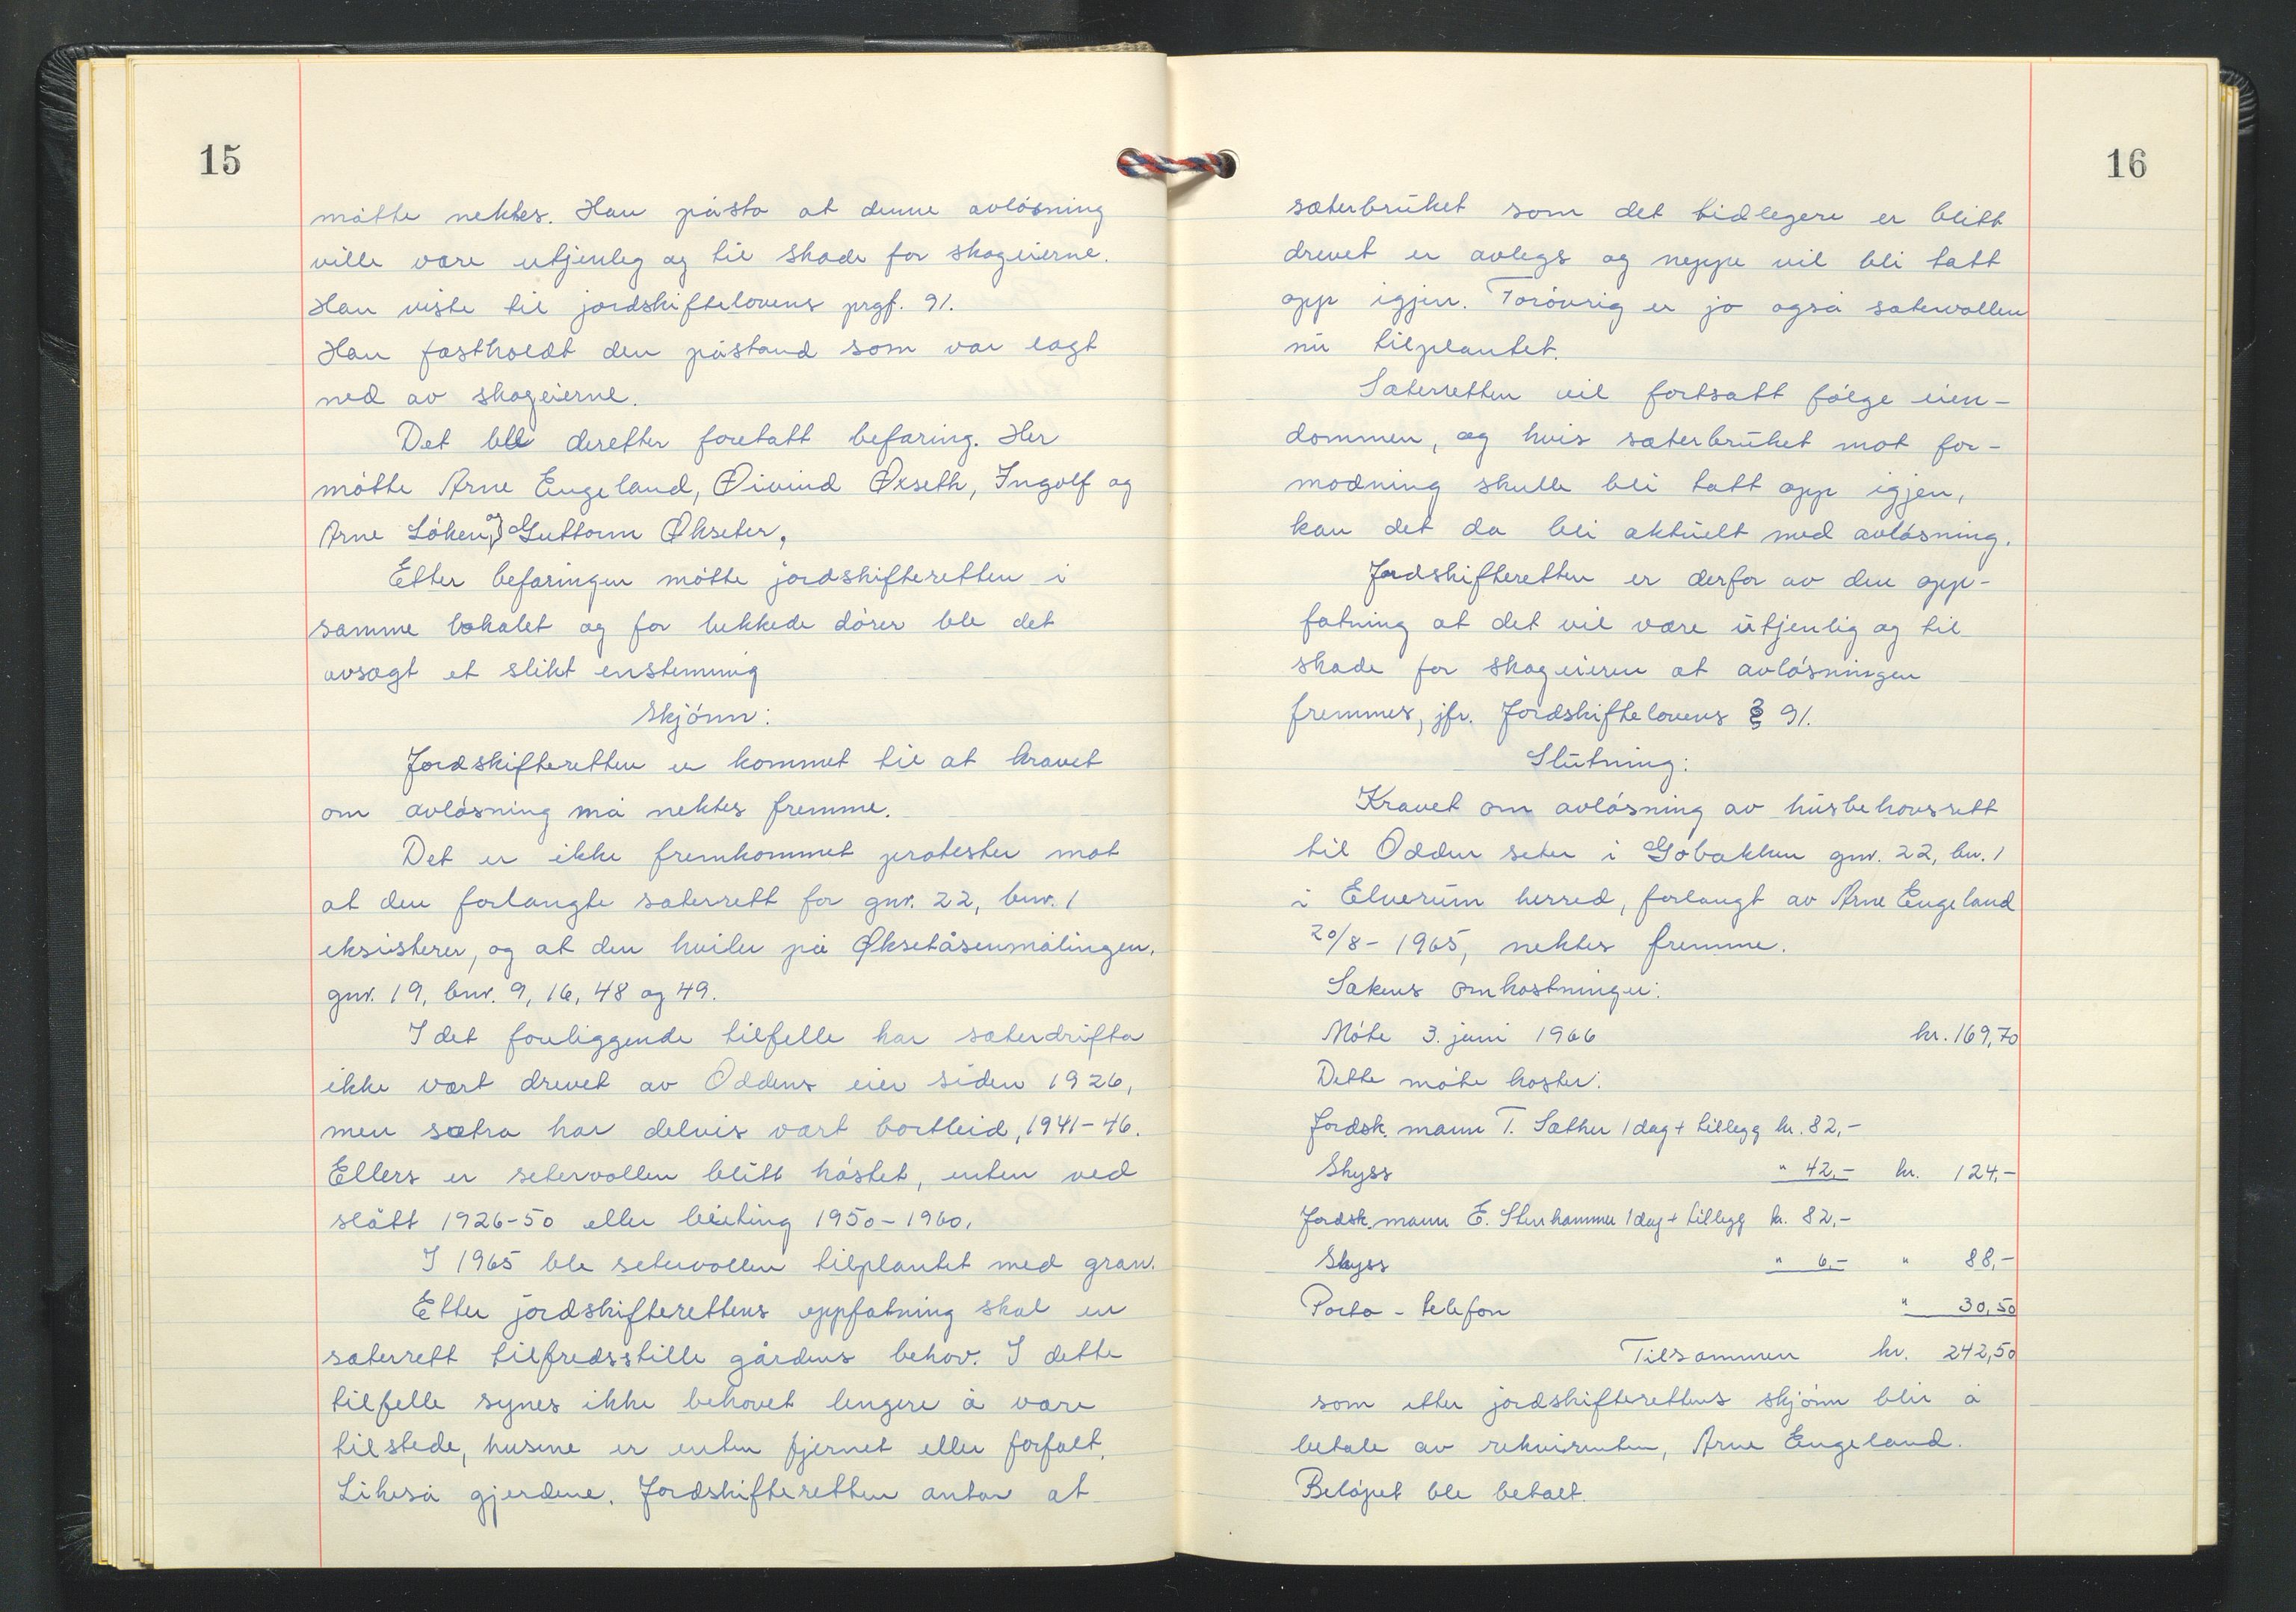 15
måtte nektes. Han påsto at denne avløsning
ville være utjenleg og til skade for skogeierne.
Han viste til jordskiftelovens prgf. 91.
Han fastholdt den påstand som var lagt
ned av skogeierne.
Det ble deretter foretatt befaring. Her
møtte Arne Engeland, Øivind Øxseth, Ingolf og
Arne Løken, og Guttorm Økseter.
Etter befaringen møtte jordskifteretten i
samme lokalet og for lukkede dører ble det
avsagt et slikt enstemmig
skjønn:
Jordskifteretten er kommet til at kravet
om avløsning må nektes fremme.
Det er ikke fremkommet protester mot
at den forlangte sæterrett for gnr. 22, bnr. 1
eksisterer, og at den hviler på Øksetåsenmålingen,
gnr. 19, bnr. 9, 16, 48 og 49.
I det foreliggende tilfelle har sæterdrifta
ikke vært drevet av Oddens eier siden 1926,
men sætra har delvis vært bortleid, 1941-46.
Ellers er setervollen blitt høstet, enten ved
slått 1926-50 eller beiting 1950-1960.
I 1965 ble setervollen tilplantet med gran.
Etter jordskifterettens oppfatning skal en
sæterrett tilfredsstille gårdens behov. I dette
tilfelle synes ikke behovet lengere å være
tilstede, husene er enten fjernet eller forfalt.
Likeså gjerdene. Jordskifteretten antar at
16
sæterbruket som det tidlegere er blitt
drevet er avlegs og neppe vil bli tatt
opp igjen. Forøvrig er jo også sætervollen
nu tilplantet.
Sæterretten vil fortsatt følge eien-
dommen, og hvis sæterbruket mot for-
modning skulle bli tatt opp igjen,
kan det da bli aktuelt med avløsning.
Jordskifteretten er derfor av den opp-
fatning at det vil være utjenlig og til
skade for skogeieren at avløsningen
fremmes, jfr. Jordskiftelovens § 91.
Slutning:
Kravet om avløsning av husbehovsrett
til Odden seter i Gobakken gnr. 22, bnr. 1
i Elverum herred, forlangt av Arne Engeland
20/8- 1965, nektes fremme.
Sakens omkostninger:
Møte 3. juni 1966 kr. 169,70
Dette møte koster:
Jordsk. mann T. Sæther 1 dag + tillegg kr. 82,-
Skyss " 42,- kr. 124,-
Jordsk. mann E. Stenhammer 1 dag + tillegg kr. 82,-
Skyss " 6,- " 88,-
Porto - telefon " 30,50
Tilsammen kr. 242,50
som etter jordskifterettens skjønn blir å
betale av rekvirenten, Arne Engeland.
Beløpet ble betalt.